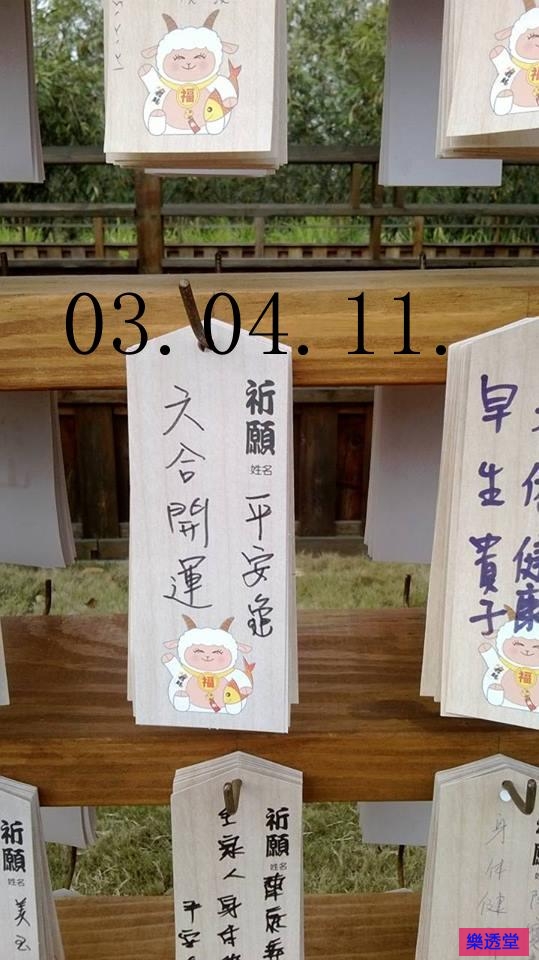 福
福
03. 04. 11.
祈願
姓名
平安龜
六合開運
福
健康
早生貴子
福
祈願
姓名
祈願
姓名
全家人身体
平安
身体健
樂透堂